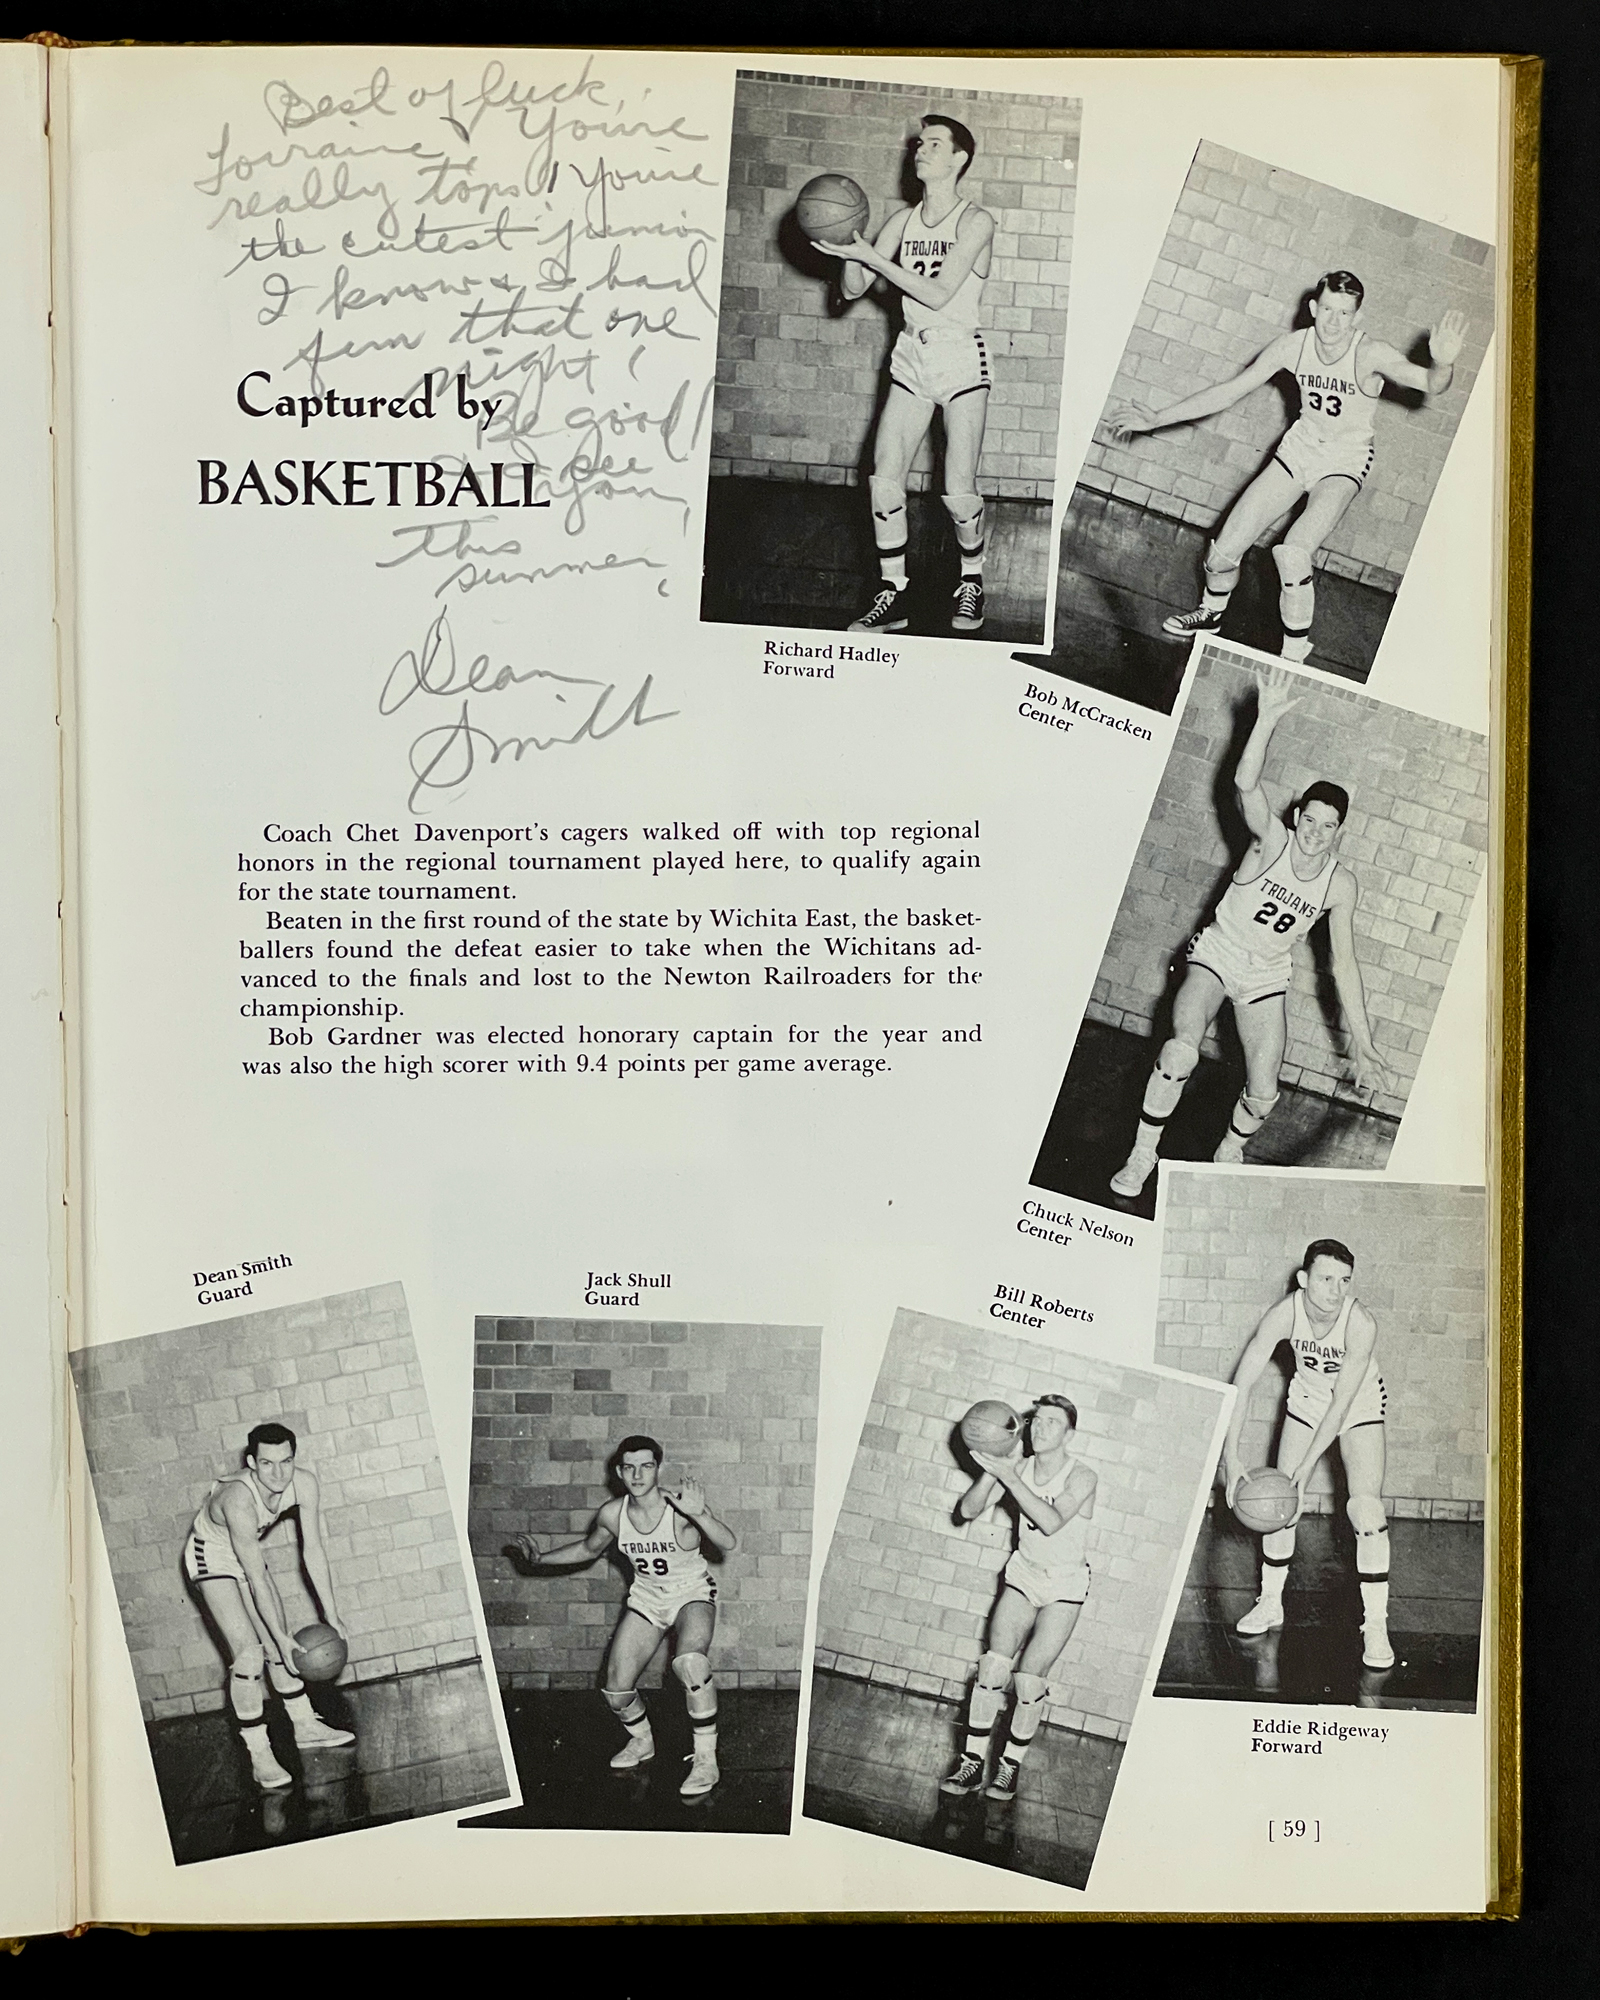 Best of luck,
Lorraine! You're
really tops! You're
the cutest junior
I know & I had
fun that one
night!
Be good!
& I see
you
this
summer,
Dean
Smith
Captured by
BASKETBALL
TROJANS
32
Richard Hadley
Forward
TROJANS
33
Bob McCracken
Center
Coach Chet Davenport's cagers walked off with top regional
honors in the regional tournament played here, to qualify again
for the state tournament.
Beaten in the first round of the state by Wichita East, the basket-
ballers found the defeat easier to take when the Wichitans ad-
vanced to the finals and lost to the Newton Railroaders for the
championship.
Bob Gardner was elected honorary captain for the year and
was also the high scorer with 9.4 points per game average.
TROJANS
28
Chuck Nelson
Center
Dean Smith
Guard
Jack Shull
Guard
TROJANS
29
Bill Roberts
Center
TROJANS
22
Eddie Ridgeway
Forward
[ 59 ]